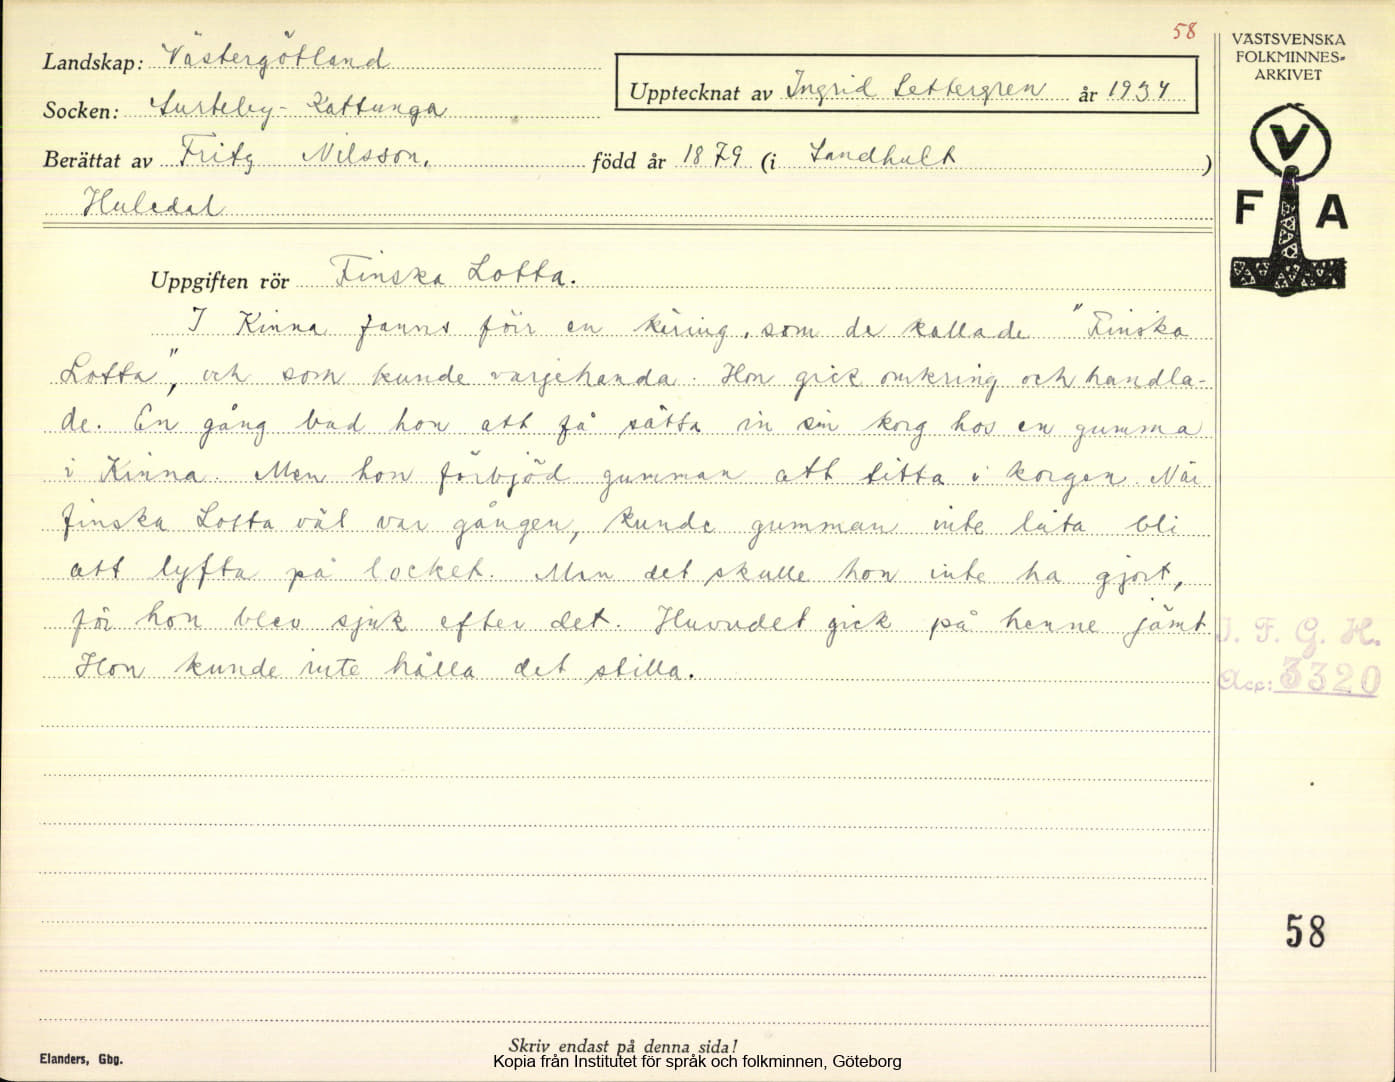 58
VÄSTSVENSKA
FOLKMINNES-
ARKIVET
Landskap: Västergötland
Upptecknat av Ingrid Settergren år 1934
Socken: Surteby-Kattunga
Berättat av Fritz Nilsson, född år 1879 (i Sandhult )
Huledal
V
F A
Uppgiften rör Finska Lotta.
I Kinna fanns förr en käring, som de kallade "Finska
Lotta", och som kunde varjehanda. Hon gick omkring och handla-
de. En gång bad hon att få sätta in sin korg hos en gumma
i Kinna. Men hon förbjöd gumman att titta i korgen. När
finska Lotta väl var gången, kunde gumman inte låta bli
att lyfta på locket. Men det skulle hon inte ha gjort,
för hon blev sjuk efter det. Huvudet gick på henne jämt
Hon kunde inte hålla det stilla.
I. F. G. H.
Acc: 3320
58
Skriv endast på denna sida!
Elanders, Gbg.
Kopia från Institutet för språk och folkminnen, Göteborg